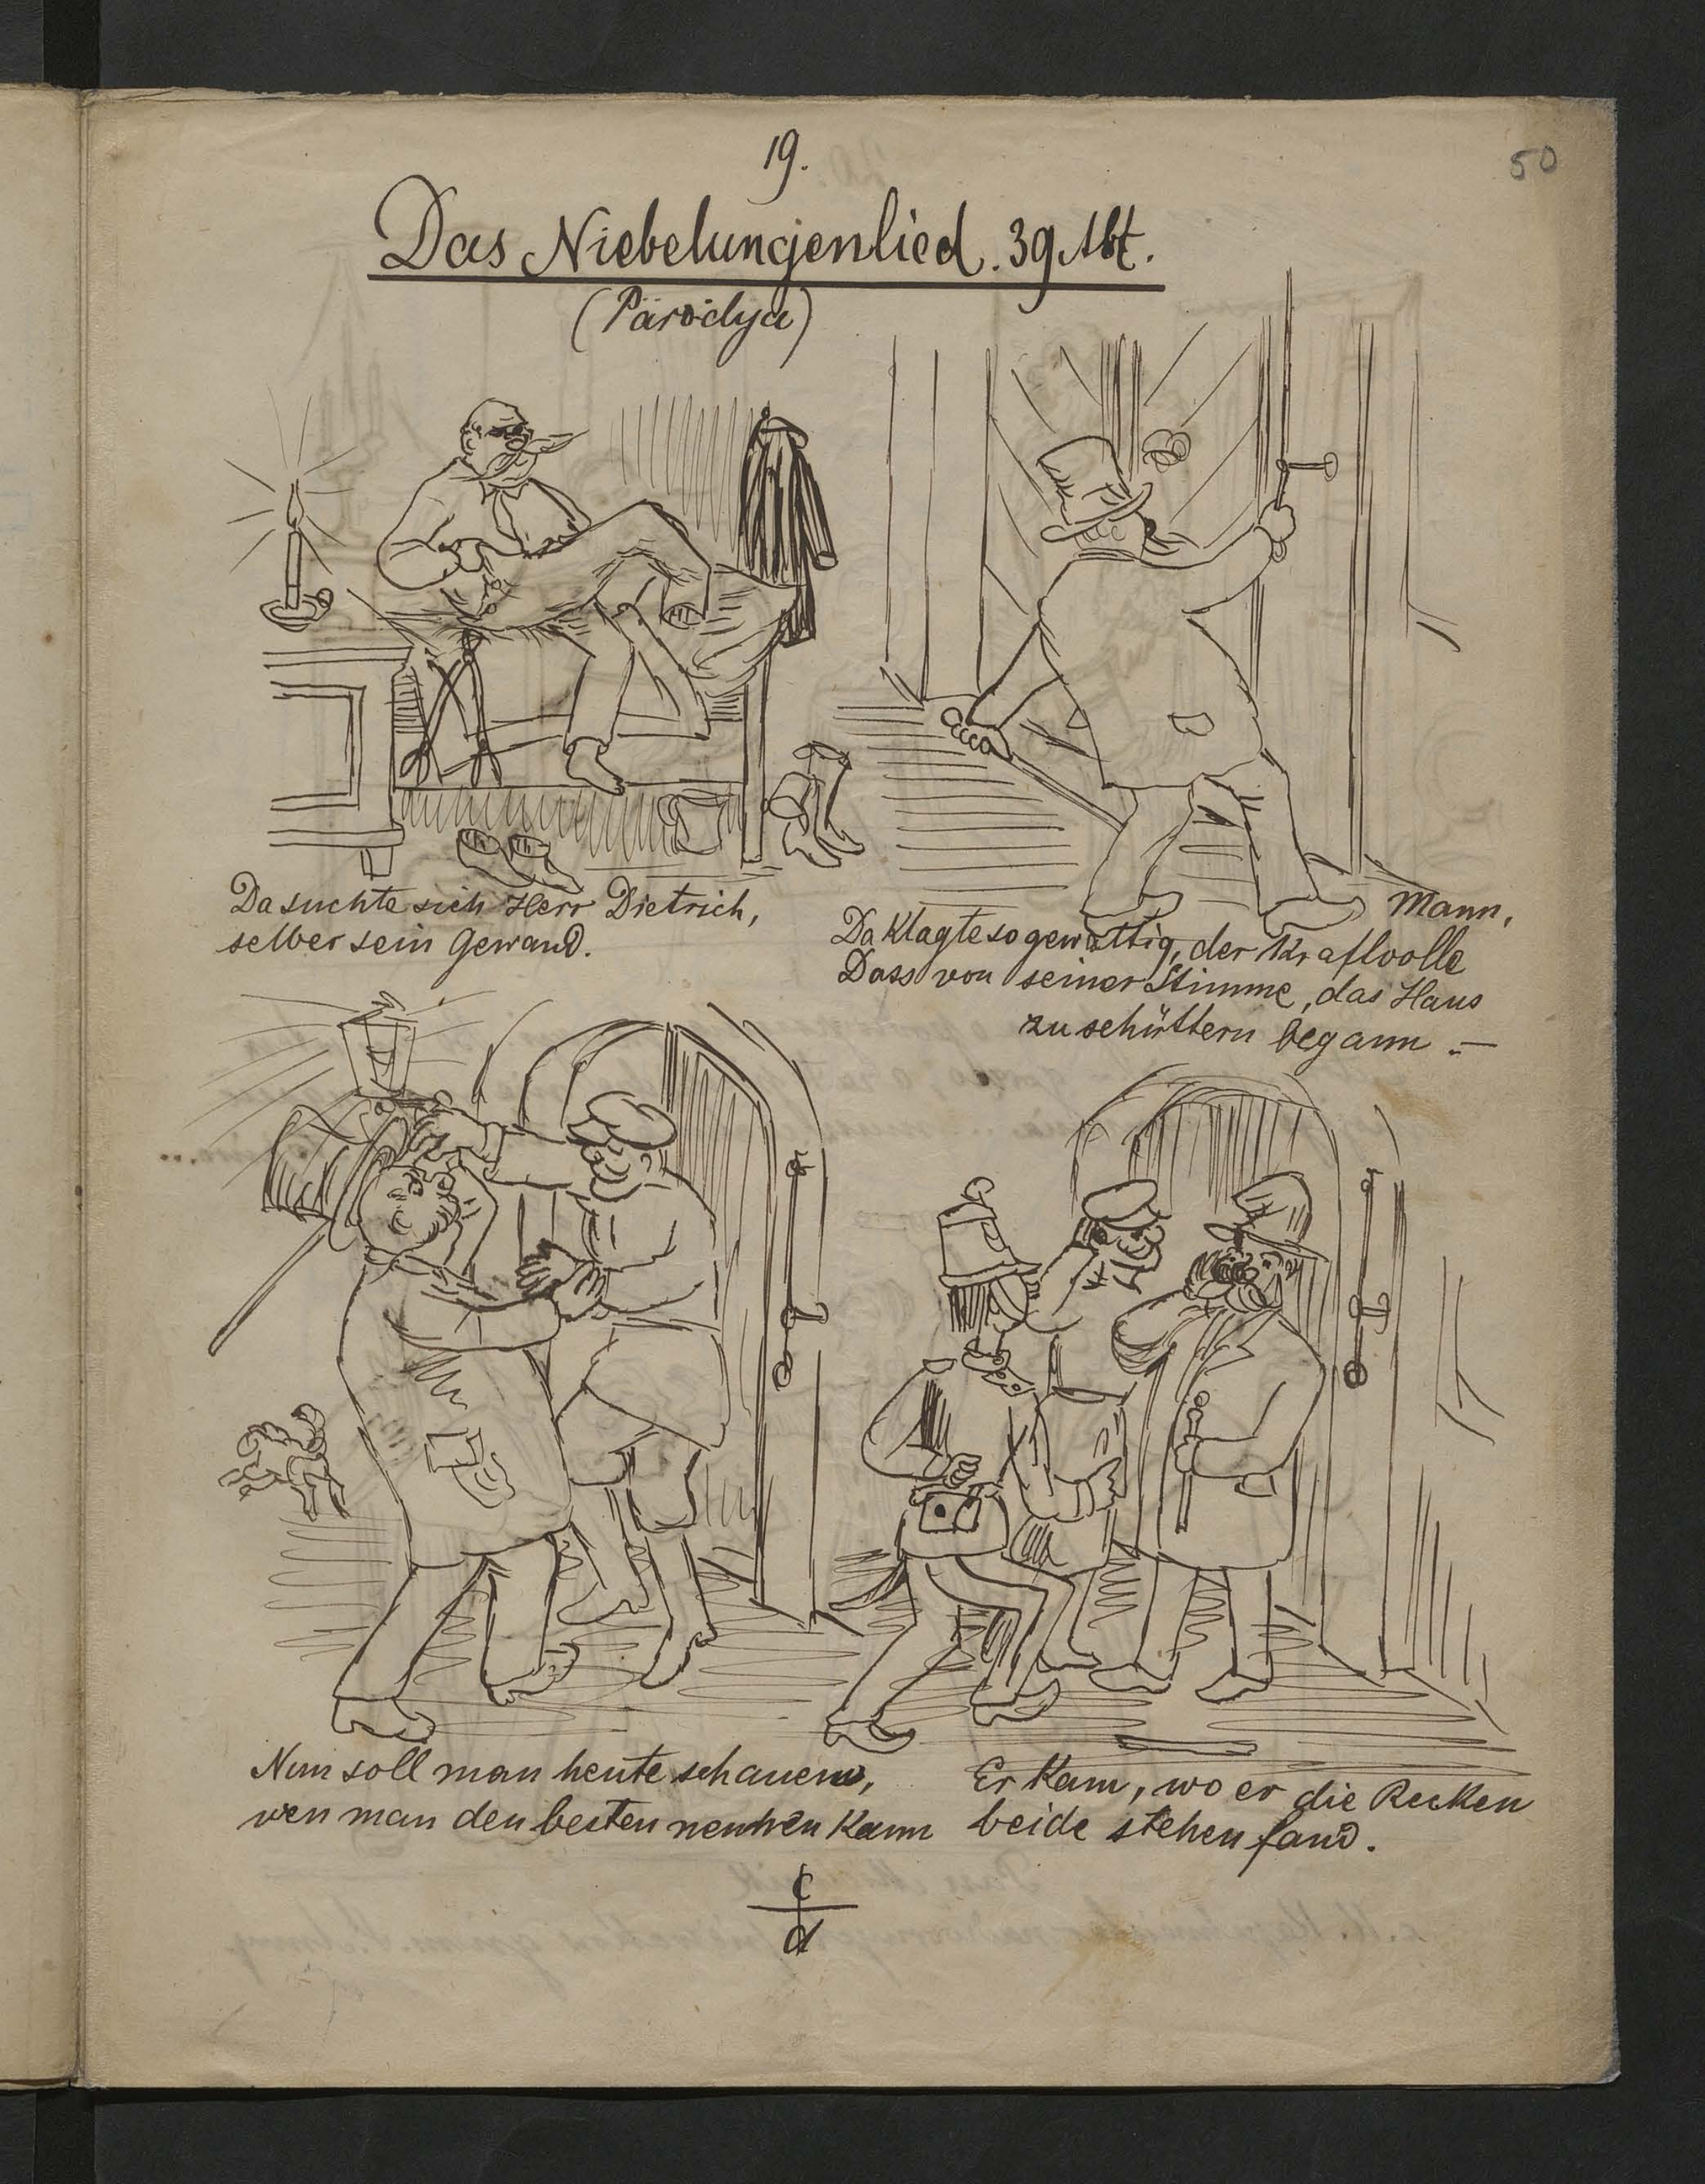 19.
50
Das Niebelungenlied. 39 Abt.
(Parodya)
Da suchte sich Herr Dietrich,
selber sein Gewand.
Da klagte so gewaltig, der kraftvolle Mann,
Dass von seiner Stimme, das Haus
zu schüttern begann.—
Nun soll man heute schauen,
wen man den besten nennen kann
Er kam, wo er die Recken
beide stehen fand.
c
d